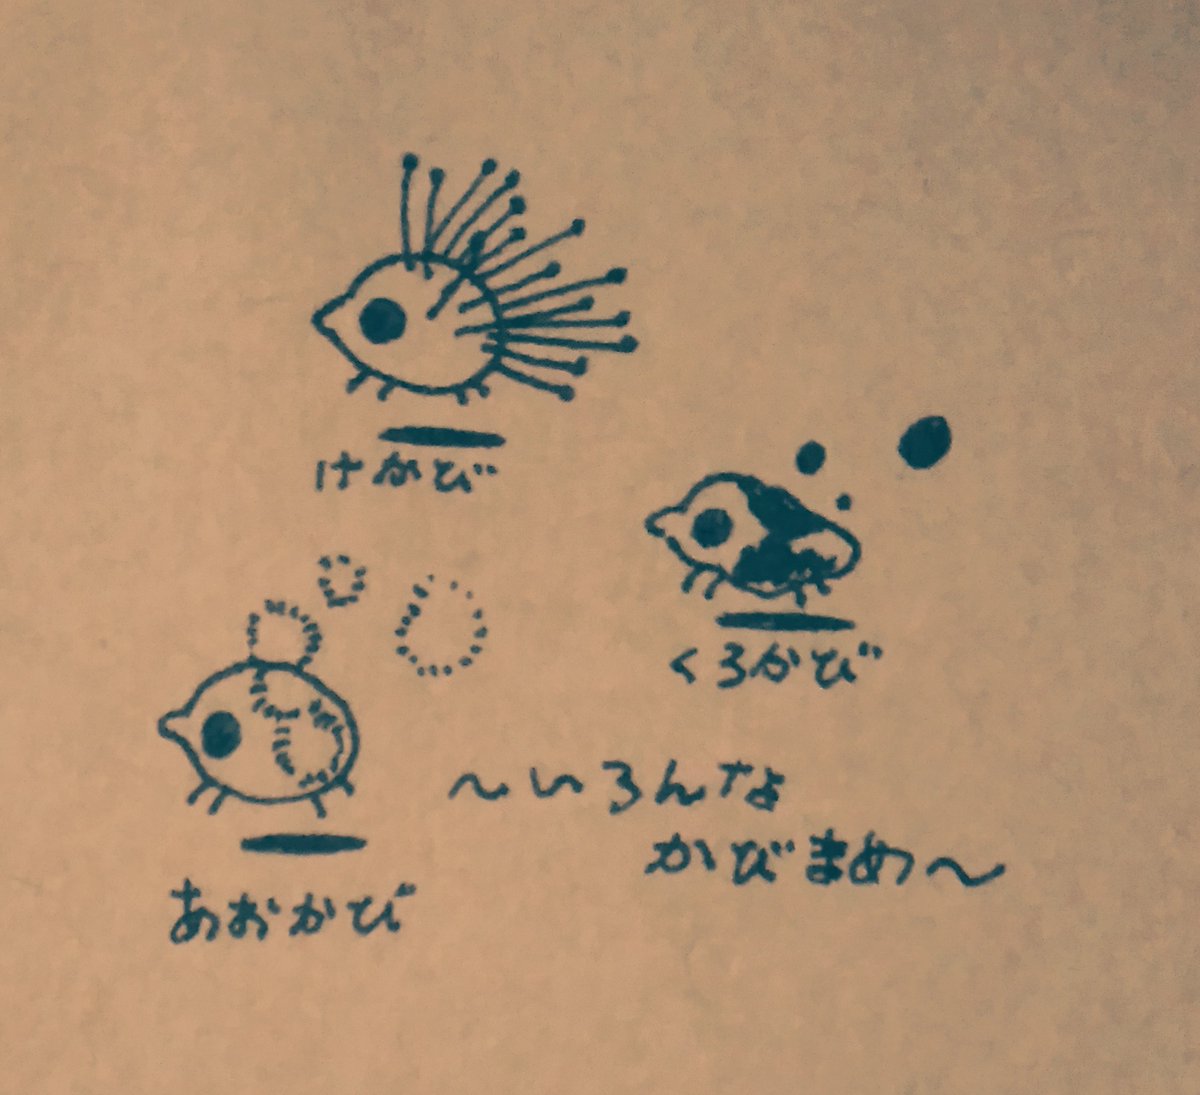 けかび
くろかび
あおかび
〜いろんな
かびまめ〜